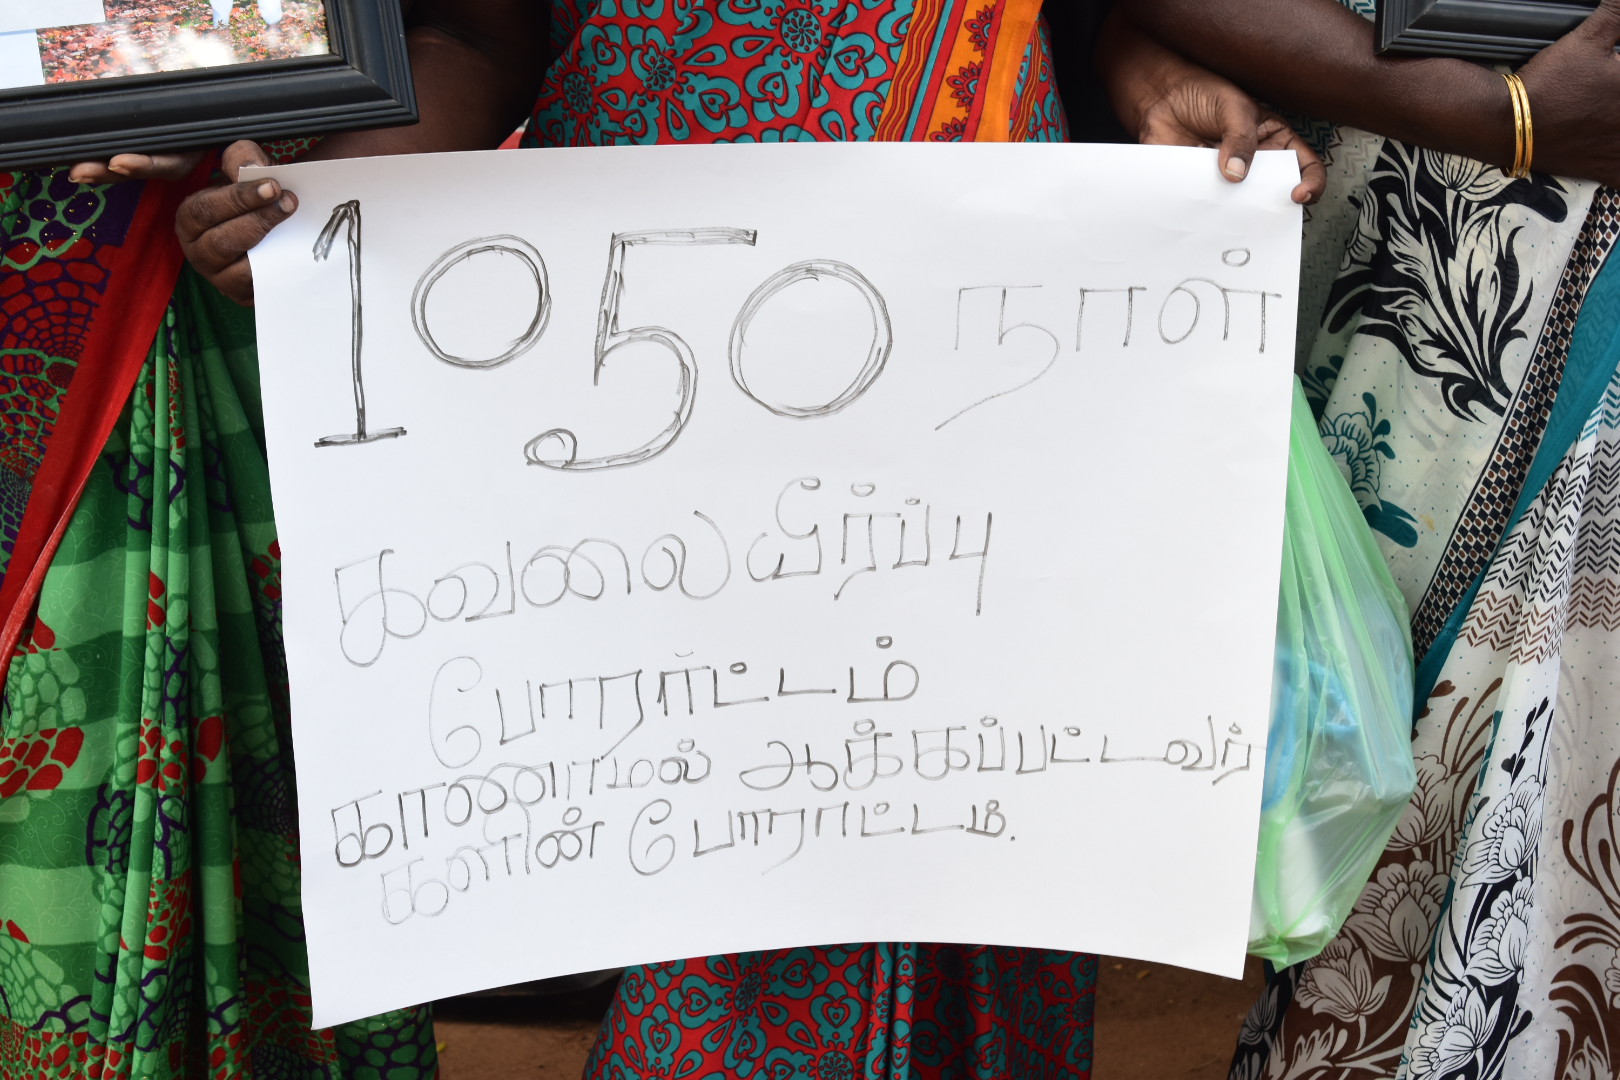 1050 நாள்
கவலையீர்ப்பு
போரார்ட்டம்
காணாமல் ஆக்கப்பட்டவர்
களின் போராட்டம்.